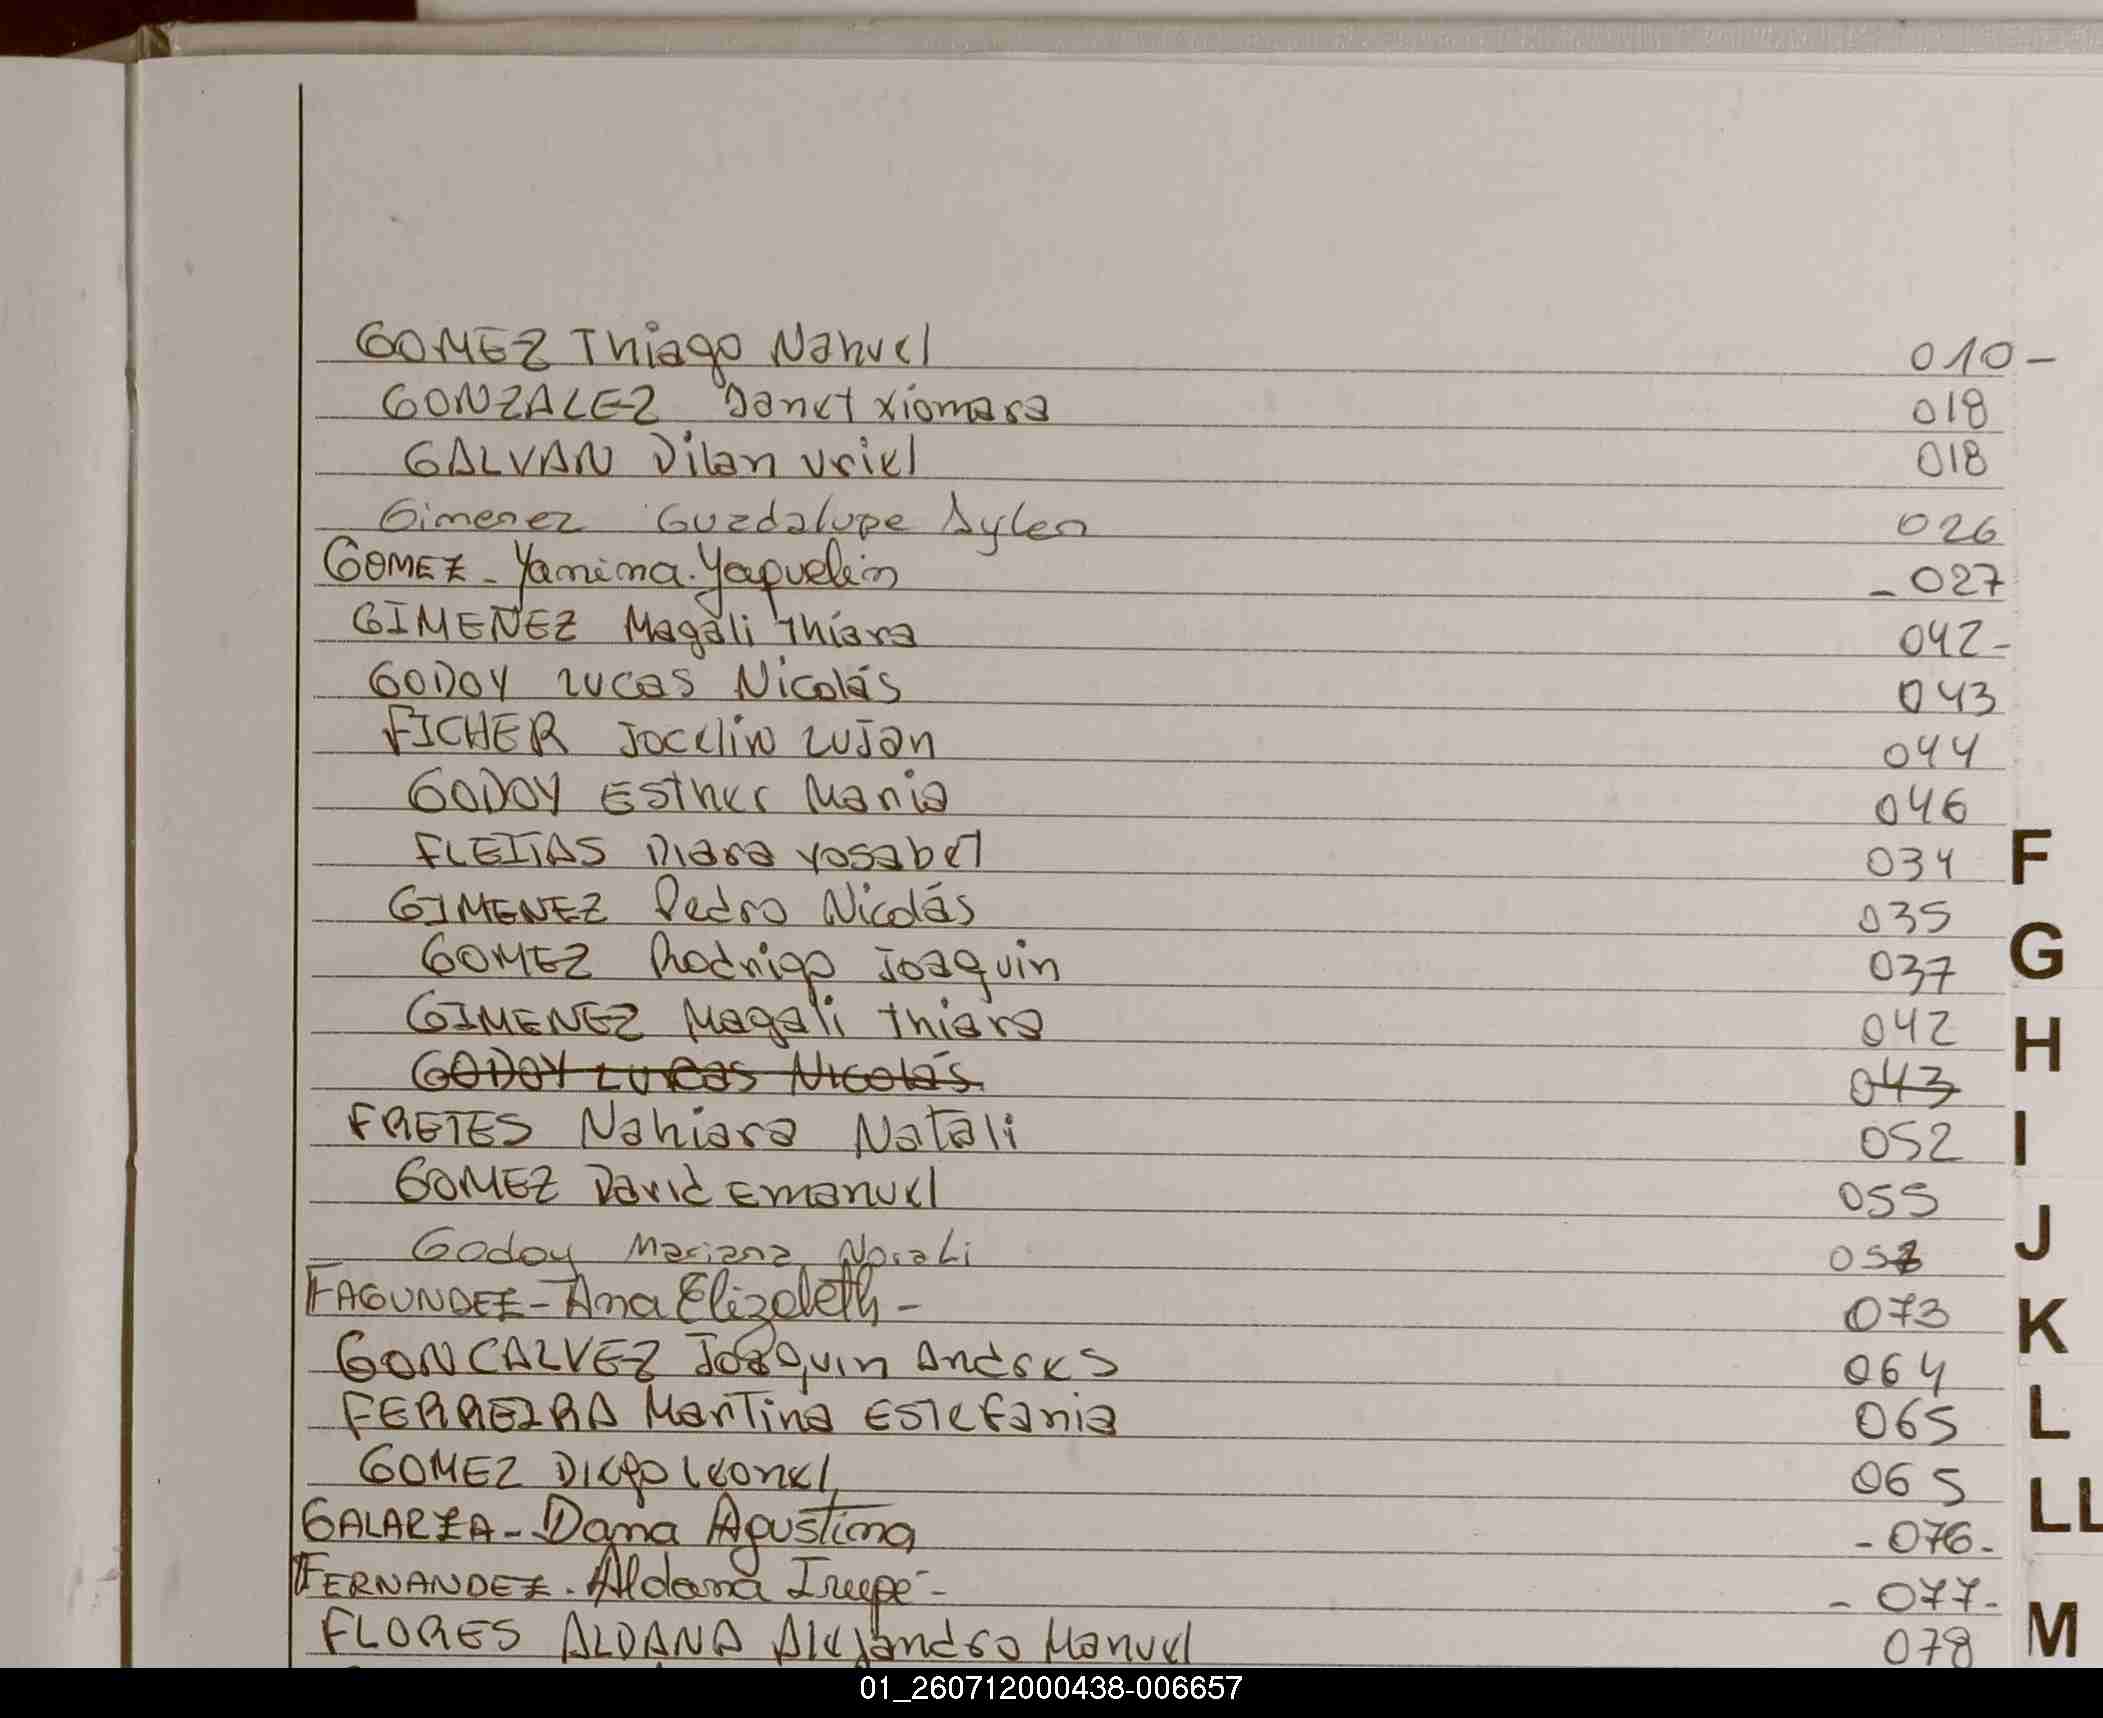 GOMEZ Thiago Nahuel 010-
GONZALEZ Janet Xiomara 018
GALVAN Dilan Uriel 018
Gimenez Guadalupe Aylen 026
GOMEZ - Yamina Yaquelin - 027
GIMENEZ Magali Thiara 042-
GODOY Lucas Nicolás 043
FICHER Jocelin Lujan 044
GODOY Esther Maria 046
FLEITAS Diara Yosabet 034
F
GIMENEZ Pedro Nicolás 035
GOMEZ Rodrigo Joaquin 037
G
GIMENEZ Magali Thiara 042
H
GODOY Lucas Nicolás 043
FRETES Nahiara Natali 052
I
GOMEZ David Emanuel 055
Godoy Mariana Norali
J
FAGUNDEZ - Ana Elizabeth - 073
K
GONCALVEZ Joaquin Andres 064
FERREIRA Martina Estefania 065
L
GOMEZ Diego Leonel 065
GALARZA - Dana Agustina - 076-
LL
FERNANDEZ - Aldana Irupé - - 077-
FLORES ALDANA Alejandro Manuel 078
M
01_260712000438-006657